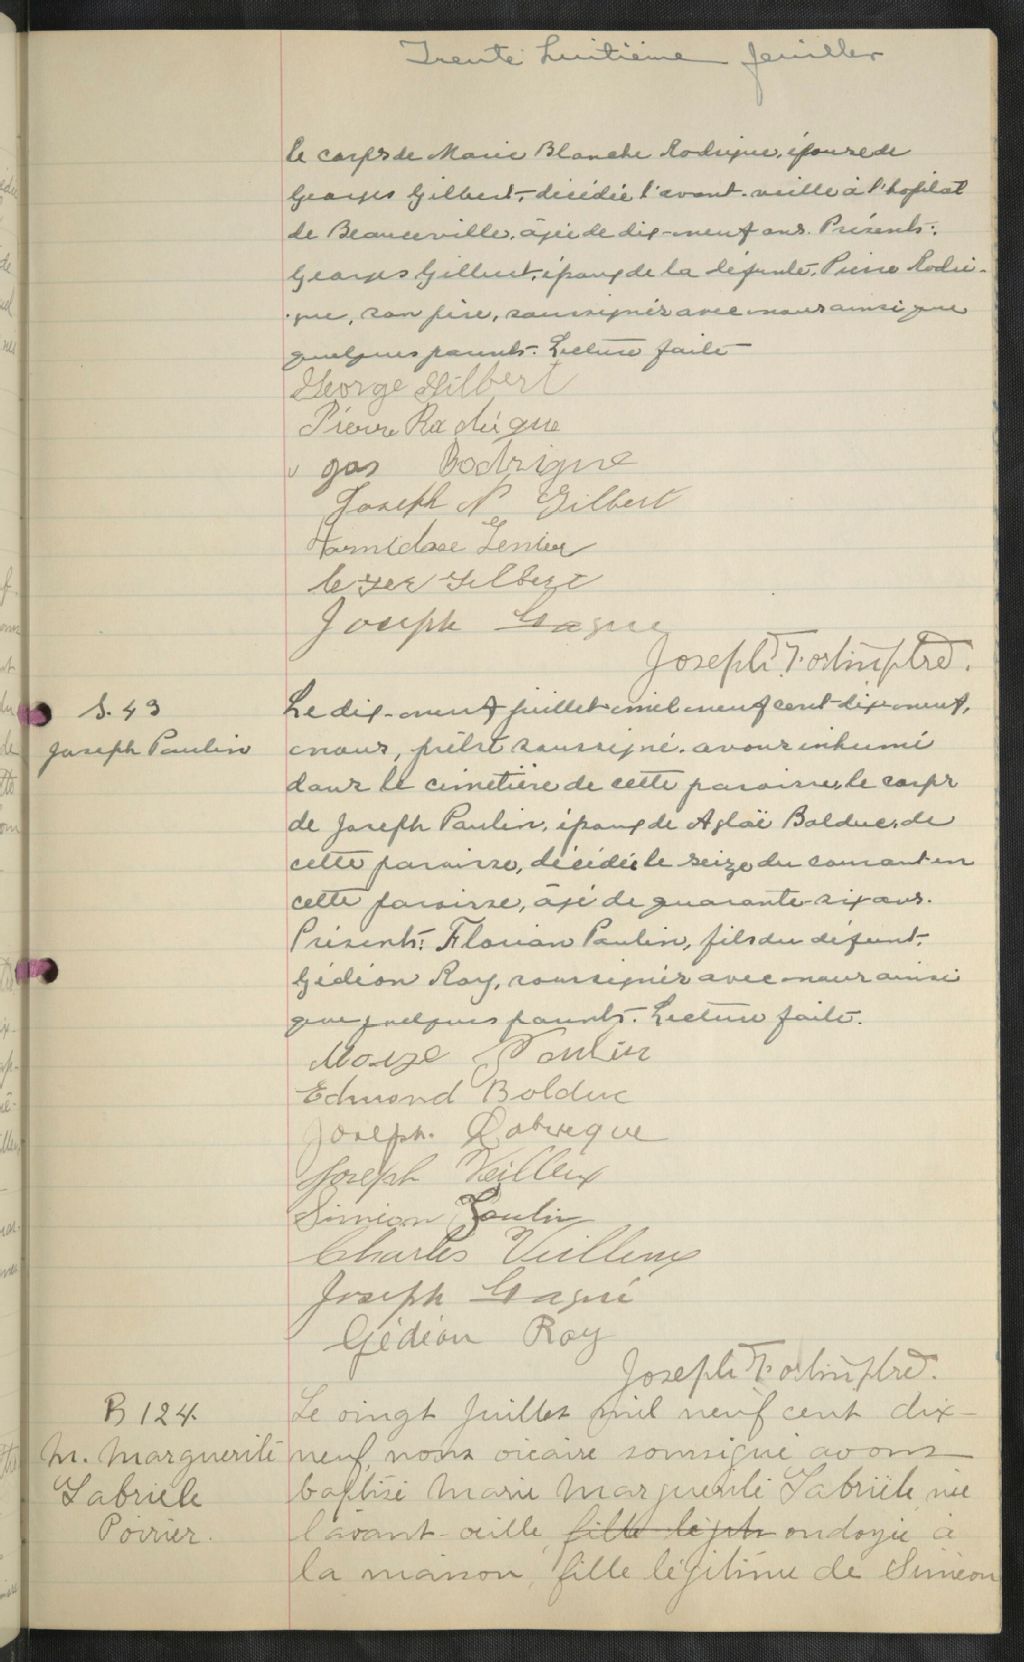 Trente huitième feuillet
le corps de Marie Blanche Rodrigue, épouse de
Georges Gilbert, décédée l'avant-veille à l'hôpital
de Beauceville, âgée de dix-neuf ans. Présents:
Georges Gilbert, époux de la défunte, Pierre Rodri-
gue, son père, soussignés avec nous ainsi que
quelques parents. Lecture faite
George Gilbert
Pierre Rodrigue
Rodrigue
Joseph N. Gilbert
Gilbert
Joseph Gagne
Joseph Fortin ptre.
S. 43
Joseph Paulin
Le dix-neuf juillet mil neuf cent dix-neuf,
nous, prêtre soussigné, avons inhumé
dans le cimetière de cette paroisse, le corps
de Joseph Paulin, époux de Aglaë Bolduc, de
cette paroisse, décédé le seize du courant en
cette paroisse, âgé de quarante-six ans.
Présents: Florian Paulin, fils du défunt,
Gédéon Roy, soussignés avec nous ainsi
que quelques parents. Lecture faite.
Paulin
Edmond Bolduc
Joseph
Joseph Veilleux
Simeon Poulin
Charles Veilleux
Joseph Gagné
Gédéon Roy
Joseph Fortin ptre.
B 124
M. Marguerite
Gabriele
Poirier.
Le vingt Juillet mil neuf cent dix-
neuf, nous vicaire soussigné avons
baptisé Marie Marguerite Gabrièle, née
l'avant-veille, fille légit ondoyée à
la maison, fille légitime de Siméon